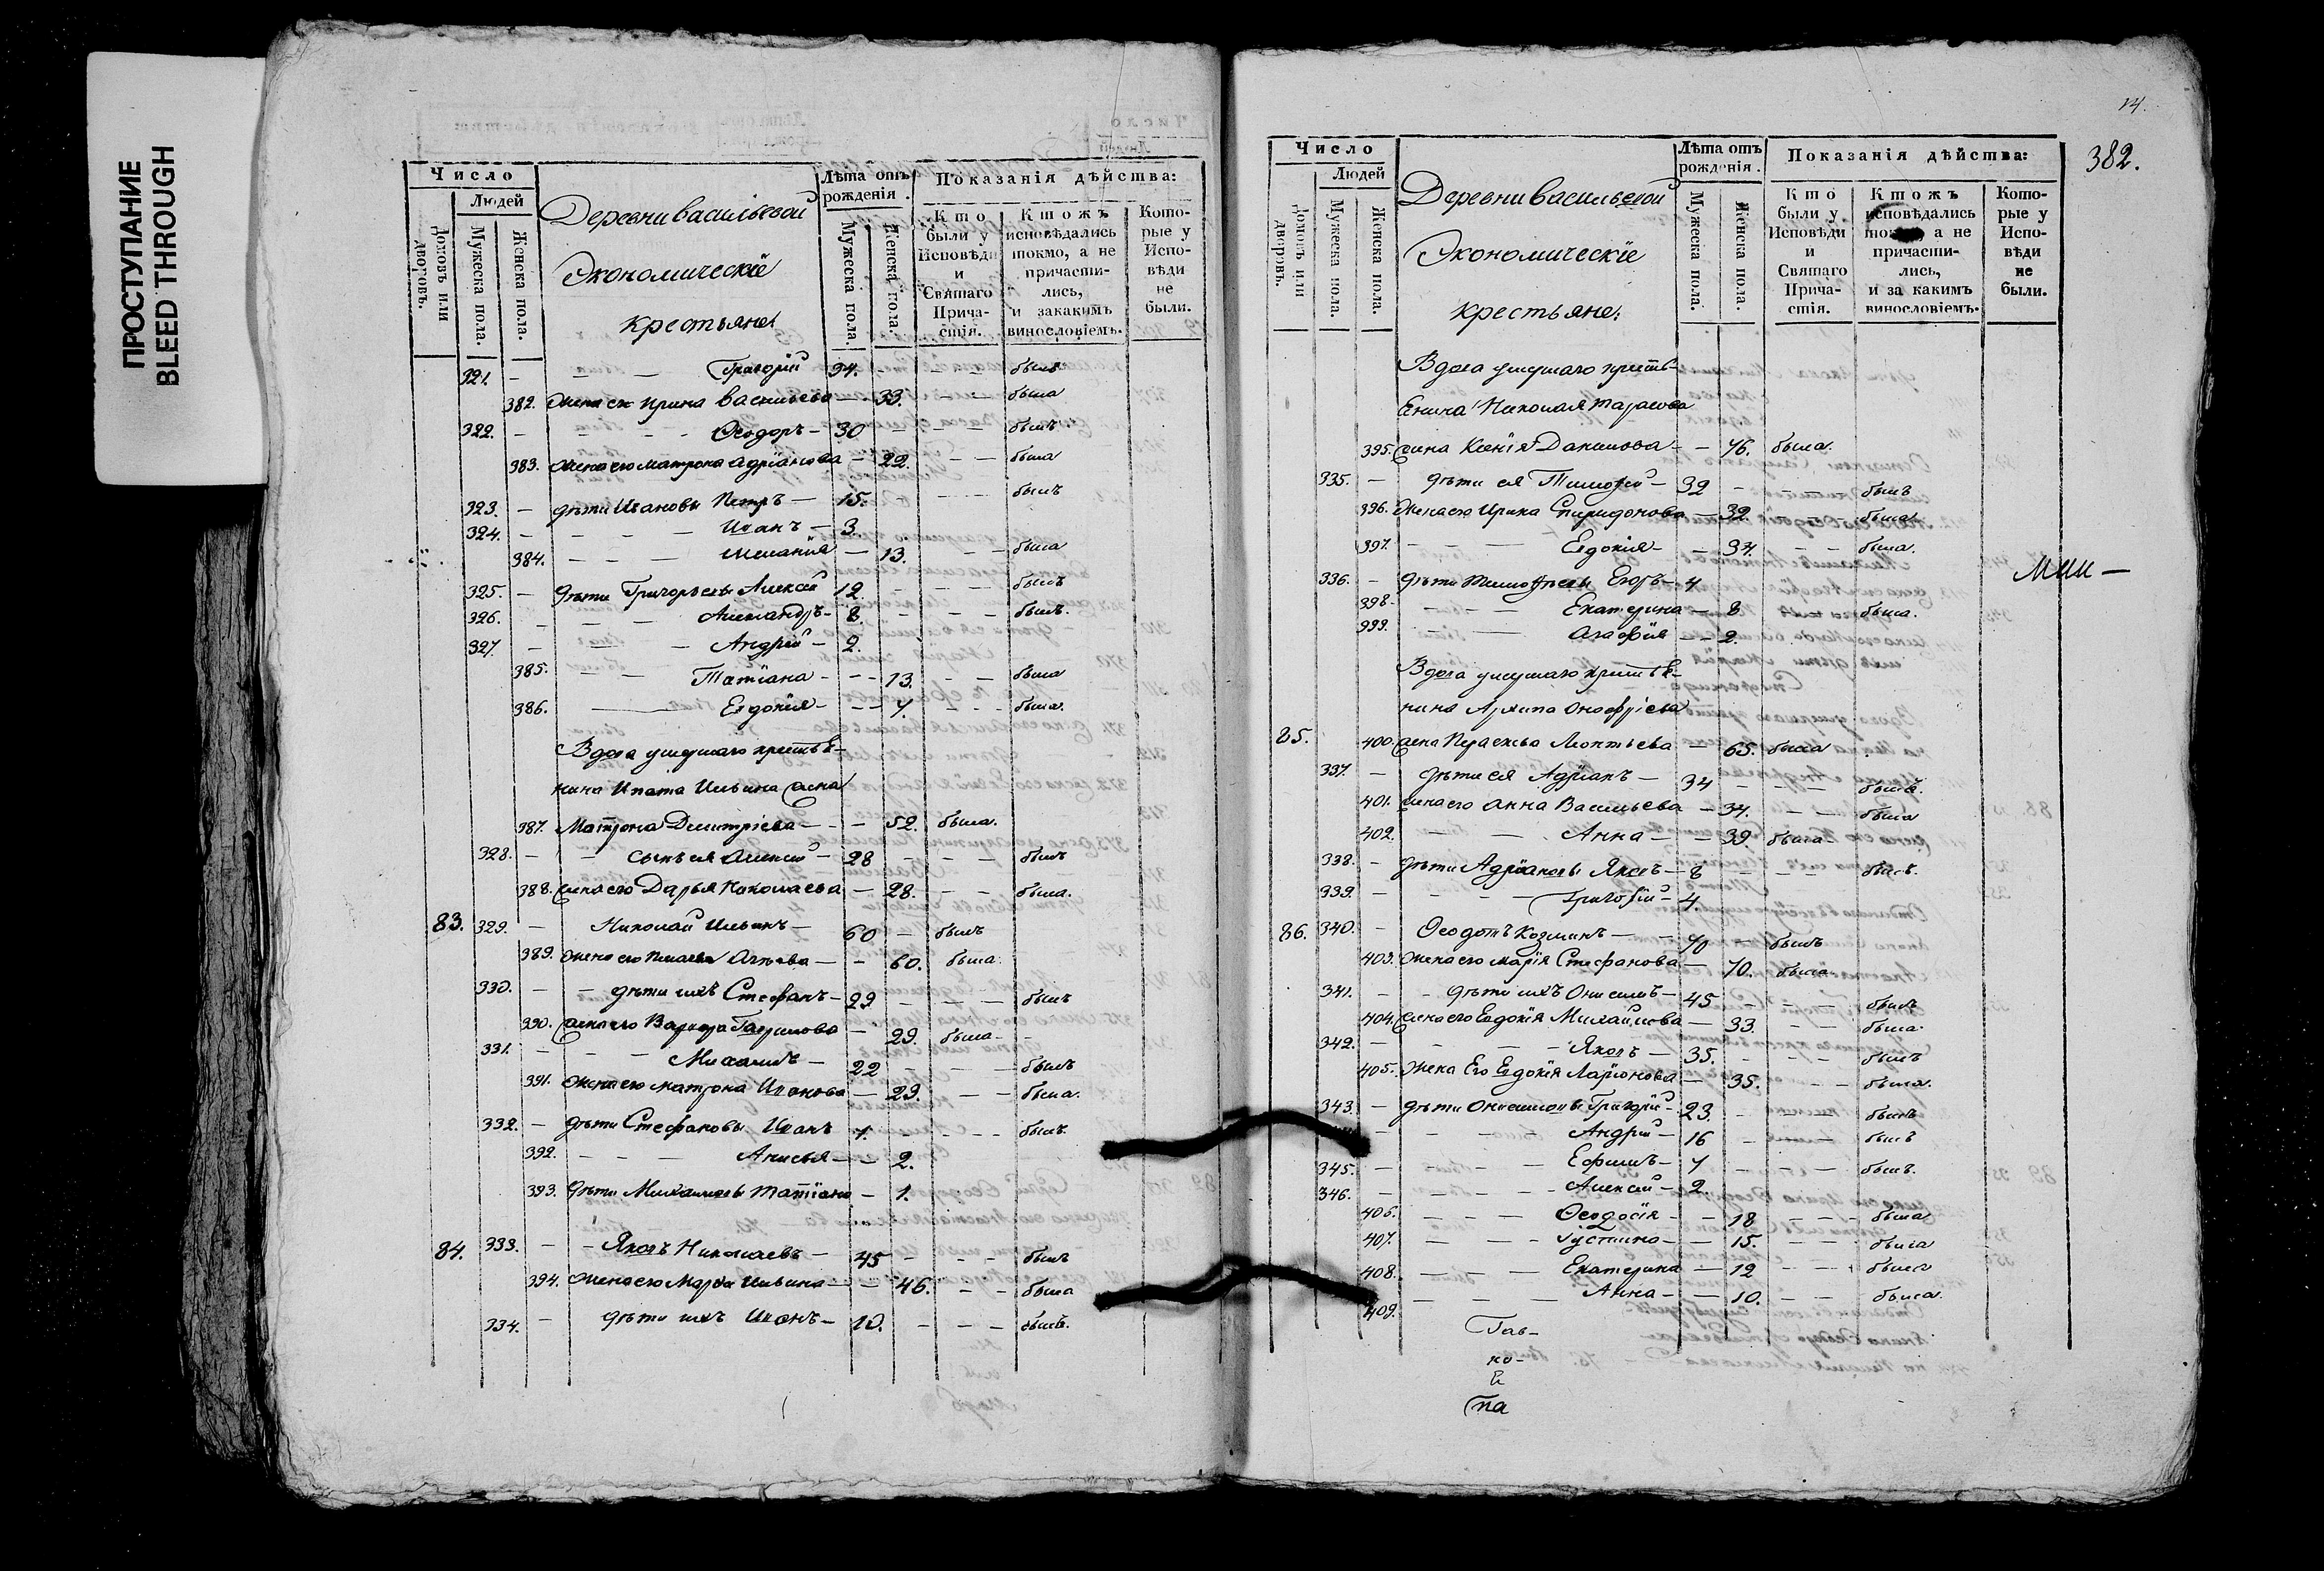 ПРОСТУПАНИЕ
BLEED THROUGH
Число
Людей
Домовъ или дворовъ.
Мужеска пола.
Женска пола.
Деревни васильевой
Экономическіе
крестьяне:
Лѣта отъ рожденія.
Мужеска пола.
Женска пола.
Показанія дѣйства:
Кто были у Исповѣди и Святаго Причастія.
Ктожъ исповѣдались токмо, а не причастились, и закакимъ винословіемъ.
Которые у Исповѣди не были.
321. — — Григорій 34. — — — былъ
382. жена ея Ирина васильева — 33. — — была
322. — — — Ѳеодоръ — 30 — — — былъ
383. жена его матрона адріанова — 22. — — была
323. — дѣти Ивановы Петръ — 15. — — былъ
324. — — — Иванъ — 3.
384. — — — меланія — 13. — — была
325. — дѣти Григорьевы Алексей 12. — — — былъ
326. — — — Александръ — 8. — — — былъ.
327. — — — Андрей — 2.
385. — — Татіана — — 13. — — была
386. — — Евдокія — — 7. — — была.
Вдова умершаго крестья-
нина Ипата Ильина жена
387. Матрона Димитріева — — 52. была.
328. — — сынъ ея Алексей — 28 — — — былъ
388. жена его Дарья Николаева — 28. — — была.
83. 329. — Николай Ильинъ — 60 — былъ
389. жена его — — 60. была.
330. — — дѣти ихъ Стефанъ — 29 — — — былъ
390. жена его Варвара Гаврилова — 29. была — —
331. — — — Михаилъ — 22 — — — былъ
391. жена его матрона Иванова — 29. — — была.
332. — дѣти Стефановы Иванъ 7. — — — былъ.
392. — — — Анисья — — 2.
393. дѣти Михаиловы татіана — 1.
84. 333. — — Яковъ Николаевъ — 45 — — — былъ
394. жена его Марѳа Ильина — — 46. — — была
334. — дѣти ихъ Иванъ — 10. — — — былъ.
14.
382.
Число
Людей
Домовъ или дворовъ.
Мужеска пола.
Женска пола.
Деревни васильевой
Экономическіе
крестьяне:
Лѣта отъ рожденія.
Мужеска пола.
Женска пола.
Показанія дѣйства:
Кто были у Исповѣди и Святаго Причастія.
Ктожъ исповѣдались токмо, а не причастились, и за какимъ винословіемъ.
Которые у Исповѣди не были.
Вдова умершаго кресть-
енина Николая тарасова
395. жена Ксенія Данилова — — 76. была.
335. — дѣти ея Тимофей — 32 — — — былъ
396. жена его Ирина Спиридонова — 32. — — была
397. — — — Евдокія — — 37. — — была.
336. — дѣти тимофеевы Егоръ — 4
398. — — — Екатерина — 8. — — была.
399. — — агафія — — 2.
Вдова умершаго крестья-
нина Архипа Онофріева
85. 400. жена Параскева Леонтьева — 65. была
337. — дѣти ея Адріанъ — 34 — — — былъ.
401. жена его анна Васильева — 37. — — была
402. — — Анна — — 39 была —
338. — дѣти Адріановы Яковъ — 8 — — — былъ.
339. — — — Григорій — 4.
86. 340. — Ѳеодотъ Козминъ — — 70 — былъ
403. жена его марія Стефанова — 70. была
341. — — дѣти ихъ Онисимъ — 45 — — — былъ
404. жена его Евдокія Михайлова — 33. — — была.
342. — — — Яковъ — 35. — — — былъ
405. жена Его Евдокія Ларіонова — 35. — — была.
343. — дѣти Онисимовы Григорій — 23. — — — былъ
— — — Андрей — 16 — — — былъ
345. — — — Ефимъ — 7 — — — былъ.
346. — — — Алексей — 2.
406. — — — Ѳеодосія — — 18 — — была
407. — — — Густина — — 15. — — была
408. — — — Екатерина — 12 — — была
409. — — — Анна — — 10. — — была.
Гав-
на